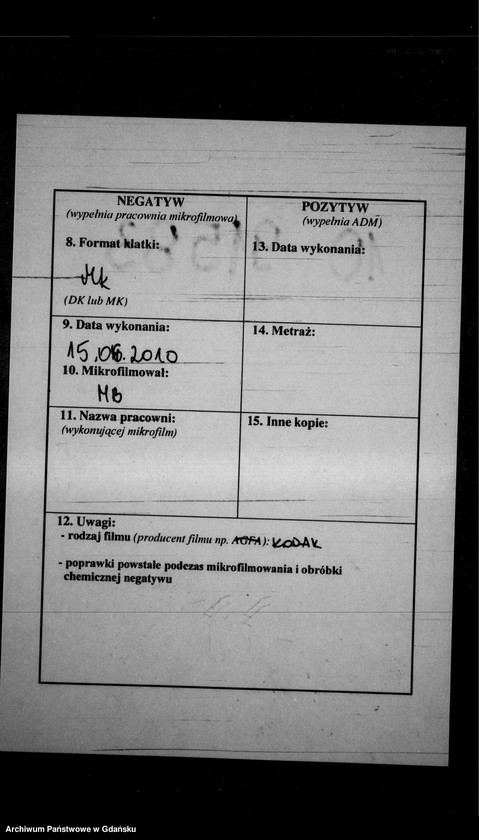 NEGATYW
(wypełnia pracownia mikrofilmowa)
8. Format klatki:
Mk
(DK lub MK)
9. Data wykonania:
15.06.2010
10. Mikrofilmował:
MB
11. Nazwa pracowni:
(wykonującej mikrofilm)
POZYTYW
(wypełnia ADM)
13. Data wykonania:
14. Metraż:
15. Inne kopie:
12. Uwagi:
- rodzaj filmu (producent filmu np. AGFA): KODAK
- poprawki powstałe podczas mikrofilmowania i obróbki
chemicznej negatywu
Archiwum Państwowe w Gdańsku